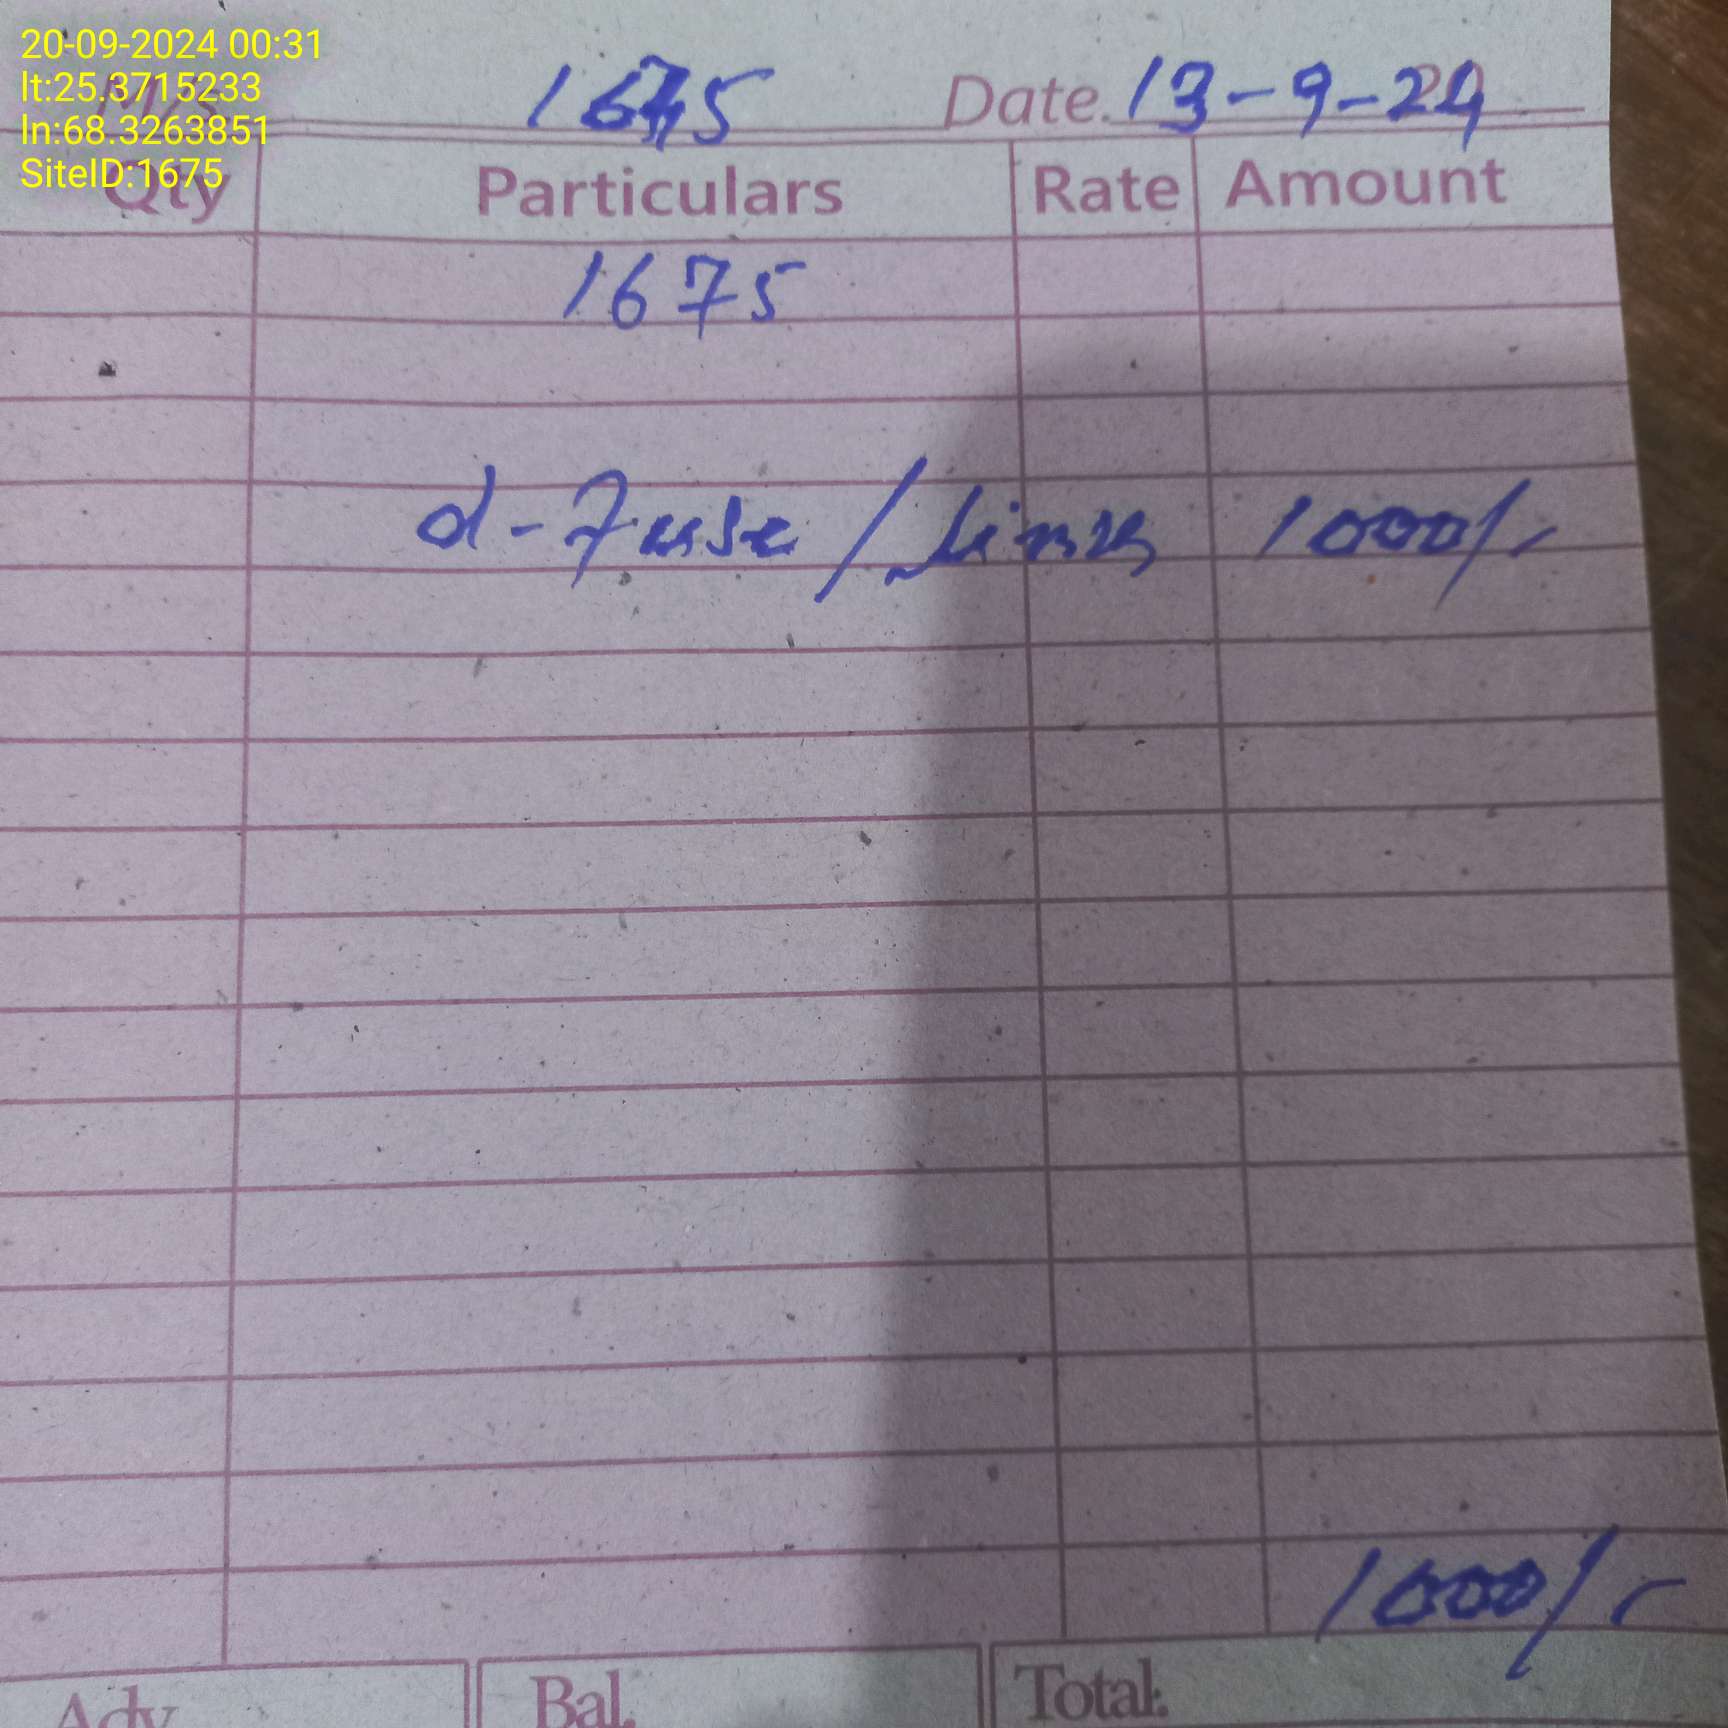 20-09-2024 00:31
lt:25.3715233
ln:68.3263851
SiteID:1675
M/s. 1675 Date. 13-9-24
Qty Particulars Rate Amount
1675
d-Fuse / 1000/-
1000/-
Adv. Bal. Total: